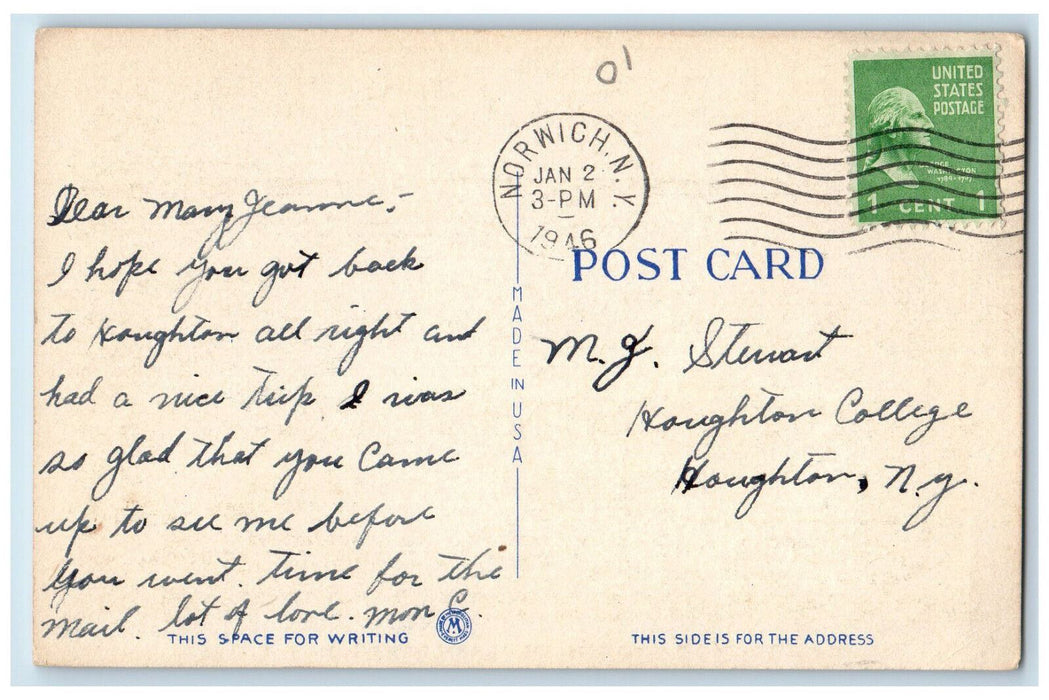 01
UNITED
STATES
POSTAGE
WASHINGTON
1 CENT 1
NORWICH, N.Y.
JAN 2
3-PM
1946
Dear Mary Jeanne,-
I hope you got back
to Houghton all right and
had a nice trip I was
so glad that you came
up to see me before
you went. Time for the
mail. lot of love. Mon C.
THIS SPACE FOR WRITING
M
MADE IN USA
POST CARD
M. J. Stewart
Houghton College
Houghton, N.Y.
THIS SIDE IS FOR THE ADDRESS